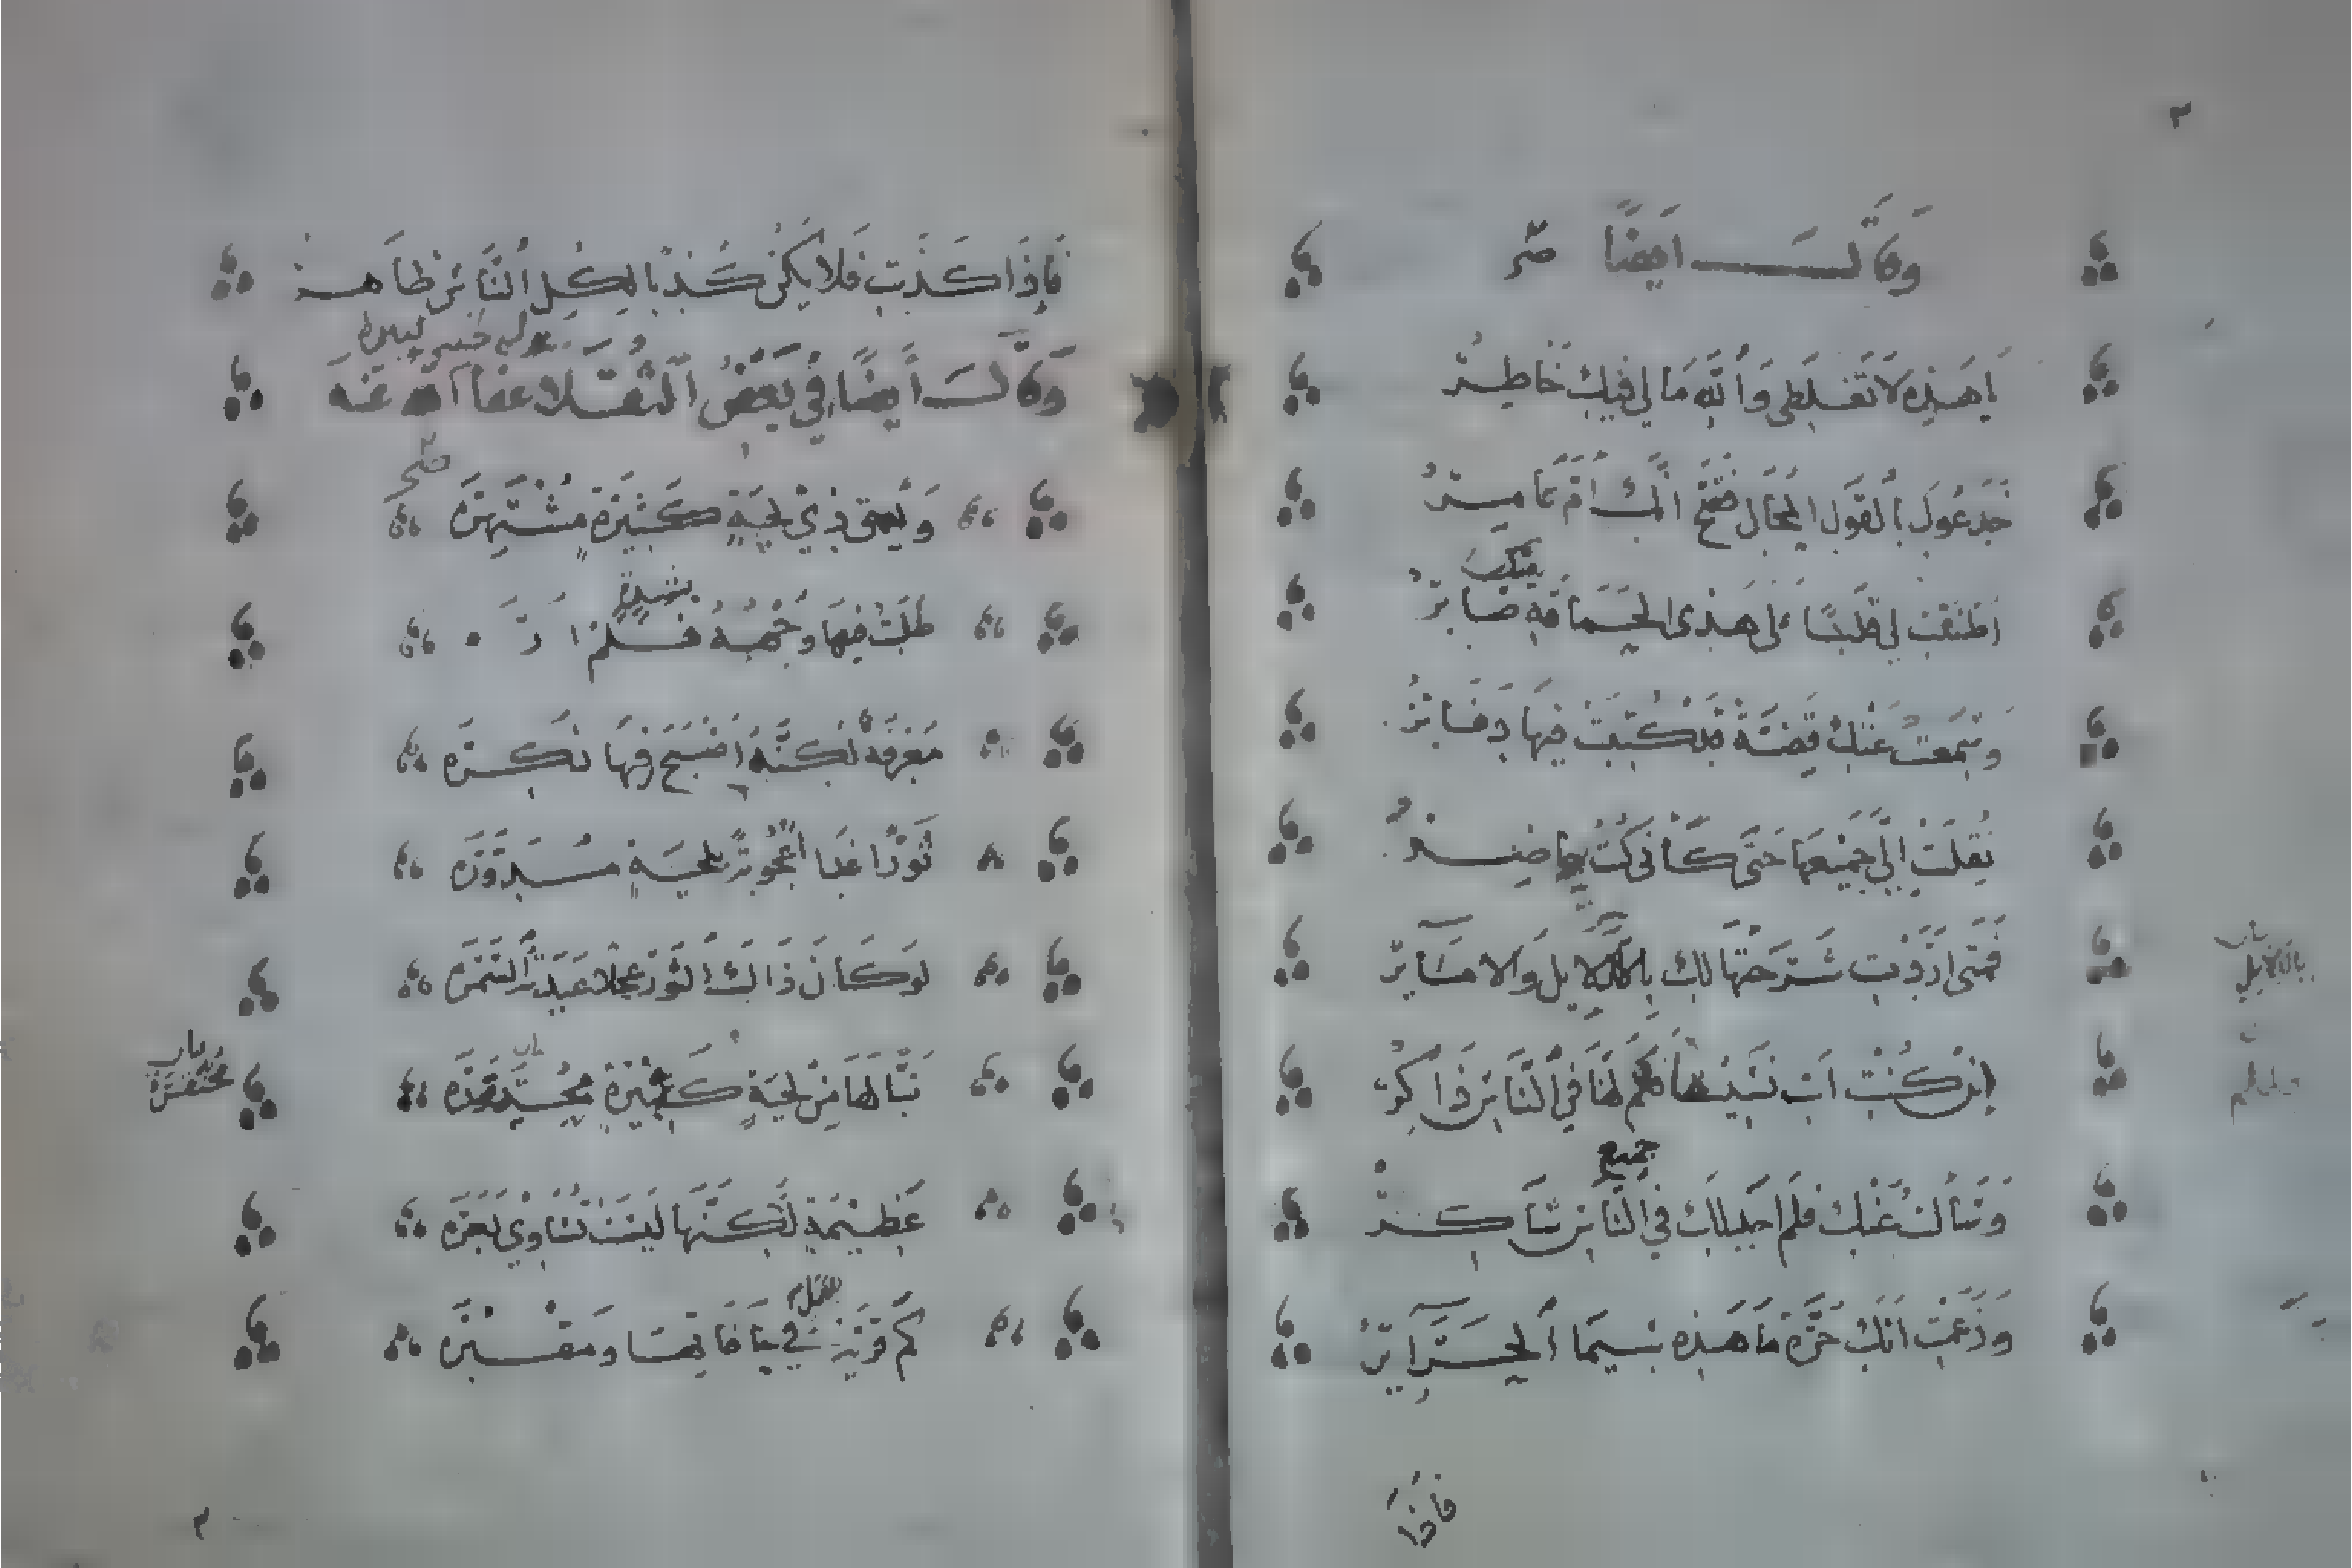 وقال أيضا صح
يا هذه لا تغلطي والله ما لي فيك خاطر
خدعوك بالقول المحال فصح أنك أم عامر
أظننت لي قلبا على هذي الحماقة صابر
وسمعت عنك قضية قد كتبت فيها دفاتر
نقلت إلي جميعها حتى كأني كنت حاضر
فمتى أردت شرحتها لك بالدلايل والامساير
إن كنت أنت نسيتها فكم لها في الناس ذاكر
جميع
وسألت عنك فلم أجد لك في الناس شاكر
وزعمت أنك حرة ما هذه سيما الحراير
فاذا
فإذا كذبت فلا يكن كذبا لكل الناس ظاهر
وقال أيضا في بعض الثقلا عفا الله عنه
صح
وأحمق ذي لحية كبيرة منتشرة
طلبت فيها وجهه فلم أر
بشدة
معرفة لكنه أصبح فيها نكرة
ثورا غدا أعجوبة بلحية مدورة
لو كان ذاك الثور عجلا عبدته السمرة
تبا لها من لحية كبيرة محتقرة
عظيمة لكنها ليست تساوي بعرة
كم قرية للقمل في حافاتها ومقبرة